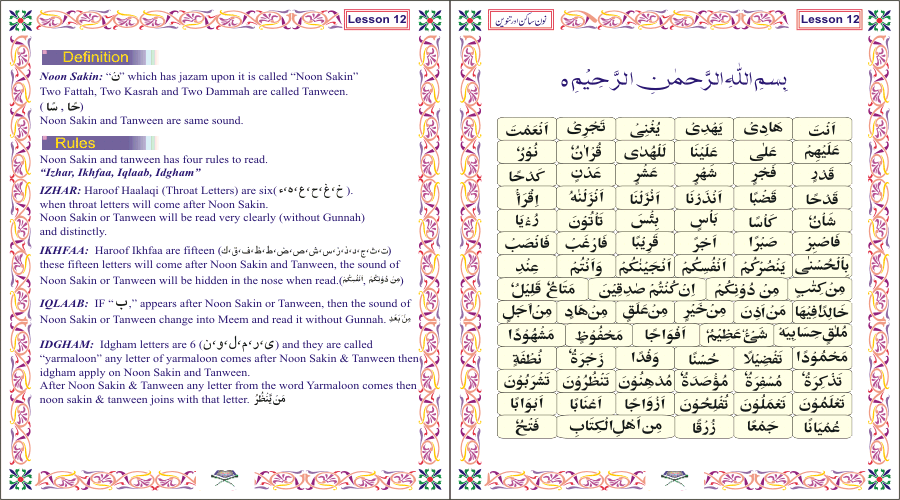 Lesson 12
Definition
Noon Sakin: “نْ” which has jazam upon it is called “Noon Sakin”
Two Fattah, Two Kasrah and Two Dammah are called Tanween.
( حًا , سًا )
Noon Sakin and Tanween are same sound.
Rules
Noon Sakin and tanween has four rules to read.
“Izhar, Ikhfaa, Iqlaab, Idgham”
IZHAR: Haroof Haalaqi (Throat Letters) are six( ء،ہ،ع،ح،غ،خ ).
when throat letters will come after Noon Sakin.
Noon Sakin or Tanween will be read very clearly (without Gunnah)
and distinctly.
IKHFAA: Haroof Ikhfaa are fifteen (ت،ث،ج،د،ذ،ز،س،ش،ص،ض،ط،ظ،ف،ق،ك)
these fifteen letters will come after Noon Sakin and Tanween, the sound of
Noon Sakin or Tanween will be hidden in the nose when read.(مِنْ دُوْنِكُمْ، اَنْفُسِكُمْ)
IQLAAB: IF “ ب,” appears after Noon Sakin or Tanween, then the sound of
Noon Sakin or Tanween change into Meem and read it without Gunnah. مِنْ بَعْدِ
IDGHAM: Idgham letters are 6 (ی،ر،م،ل،و،ن) and they are called
“yarmaloon” any letter of yarmaloon comes after Noon Sakin & Tanween then
idgham apply on Noon Sakin and Tanween.
After Noon Sakin & Tanween any letter from the word Yarmaloon comes then
noon sakin & tanween joins with that letter. مَنْ يَّنْظُرُ
نون ساکن اور تنوین
Lesson 12
بِسْمِ اللّٰهِ الرَّحْمٰنِ الرَّحِيْمِ ٥
اَنْتَ هَادِیْ يَهْدِیْ يُغْنِیْ تَجْرِیْ اَنْعَمْتَ
عَلَيْهِمْ عَلٰى عَلَيْنَا لَلْهُدٰى قُرْاٰنٌ نُوْرٌ
قَدْرِ فَجْرٍ شَهْرٍ عَشْرٍ عَدْنٍ كَدْحًا
قَدْحًا قَضْبًا اَنْذَرْنَا اَنْزَلْنَا اَنْزَلْنٰهُ اِقْرَاْ
شَاْنٌ كَاْسًا بَاْسٍ بِئْسَ تَاْتُوْنَ رُءْيَا
فَاصْبِرْ صَبْرًا اَجْرٌ قَرِيْبًا فَارْغَبْ فَانْصَبْ
بِالْحُسْنٰى يَنْصُرْكُمْ اَنْفُسِكُمْ اَنْجَيْنٰكُمْ وَاَنْتُمْ عِنْدِ
مِنْ كِتٰبٍ مِنْ دُوْنِكُمْ اِنْ كُنْتُمْ صٰدِقِيْنَ مَتَاعٌ قَلِيْلٌ
خَالِدًا فِيْهَا مَنْ اَذِنَ مِنْ خَيْرٍ مِنْ عَلَقٍ مِنْ هَادٍ مِنْ اَجَلٍ
مُلٰقٍ حِسَابِيَهْ شَیْءٌ عَظِيْمٌ اَفْوَاجًا مَحْفُوْظٍ مَشْهُوْدًا
مَحْمُوْدًا تَفْضِيْلًا حُسْنًا وَفْدًا زَجْرَةٌ نُطْفَةٍ
تَذْكِرَةٌ مُسْفِرَةٌ مُؤْصَدَةٌ مُدْهِنُوْنَ تَنْظُرُوْنَ تَشْرَبُوْنَ
تَعْلَمُوْنَ تَعْمَلُوْنَ تُفْلِحُوْنَ اَزْوَاجًا اَعْنَابًا اَبْوَابًا
عُمْيَانًا جَمْعًا زُرْقًا مِنْ اَهْلِ الْكِتَابِ فَتْحٌ